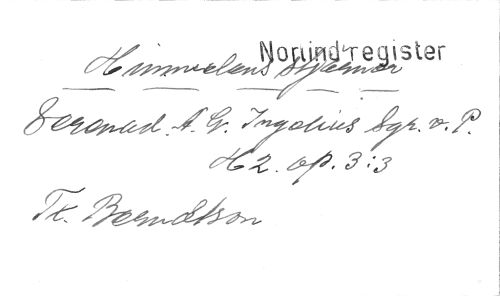 Norlind-register
Himmelens stjärnor
Serenad. A. G. Ingelius Sgr. v. P.
H2. op. 3:3
Tx. Berndtson